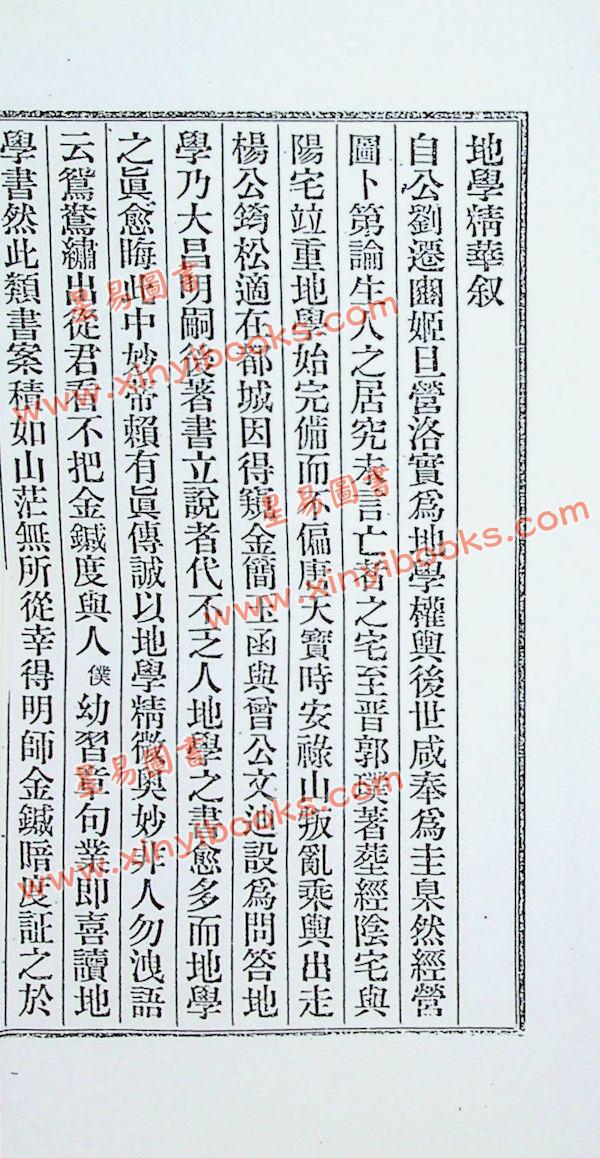 地學精華叙
自公劉遷豳姬旦營洛實爲地學權輿後世咸奉爲主臬然經營
圖卜第論生人之居究未言亡者之宅至晉郭璞著塟經陰宅與
陽宅竝重地學始完備而不偏唐天寶時安祿山叛亂乘輿出走
楊公筠松適在都城因得窺金簡玉函與曾公文辿設爲問答地
學乃大昌明嗣後著書立說者代不乏人地學之書愈多而地學
之眞愈晦此中妙帝賴有眞傳誠以地學精微奥妙非人勿洩語
云鴛鴦繡出從君看不把金鍼度與人僕幼習章句業即喜讀地
學書然此類書案積如山茫無所從幸得明師金鍼暗度証之於
星易圖書
www.xinyibooks.com
星易圖書
www.xinyibooks.com
星易圖書
www.xinyibooks.com